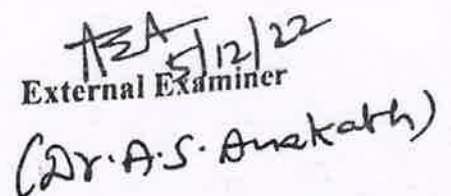 5/12/22
External Examiner
(Dr. A.S. Anakath)